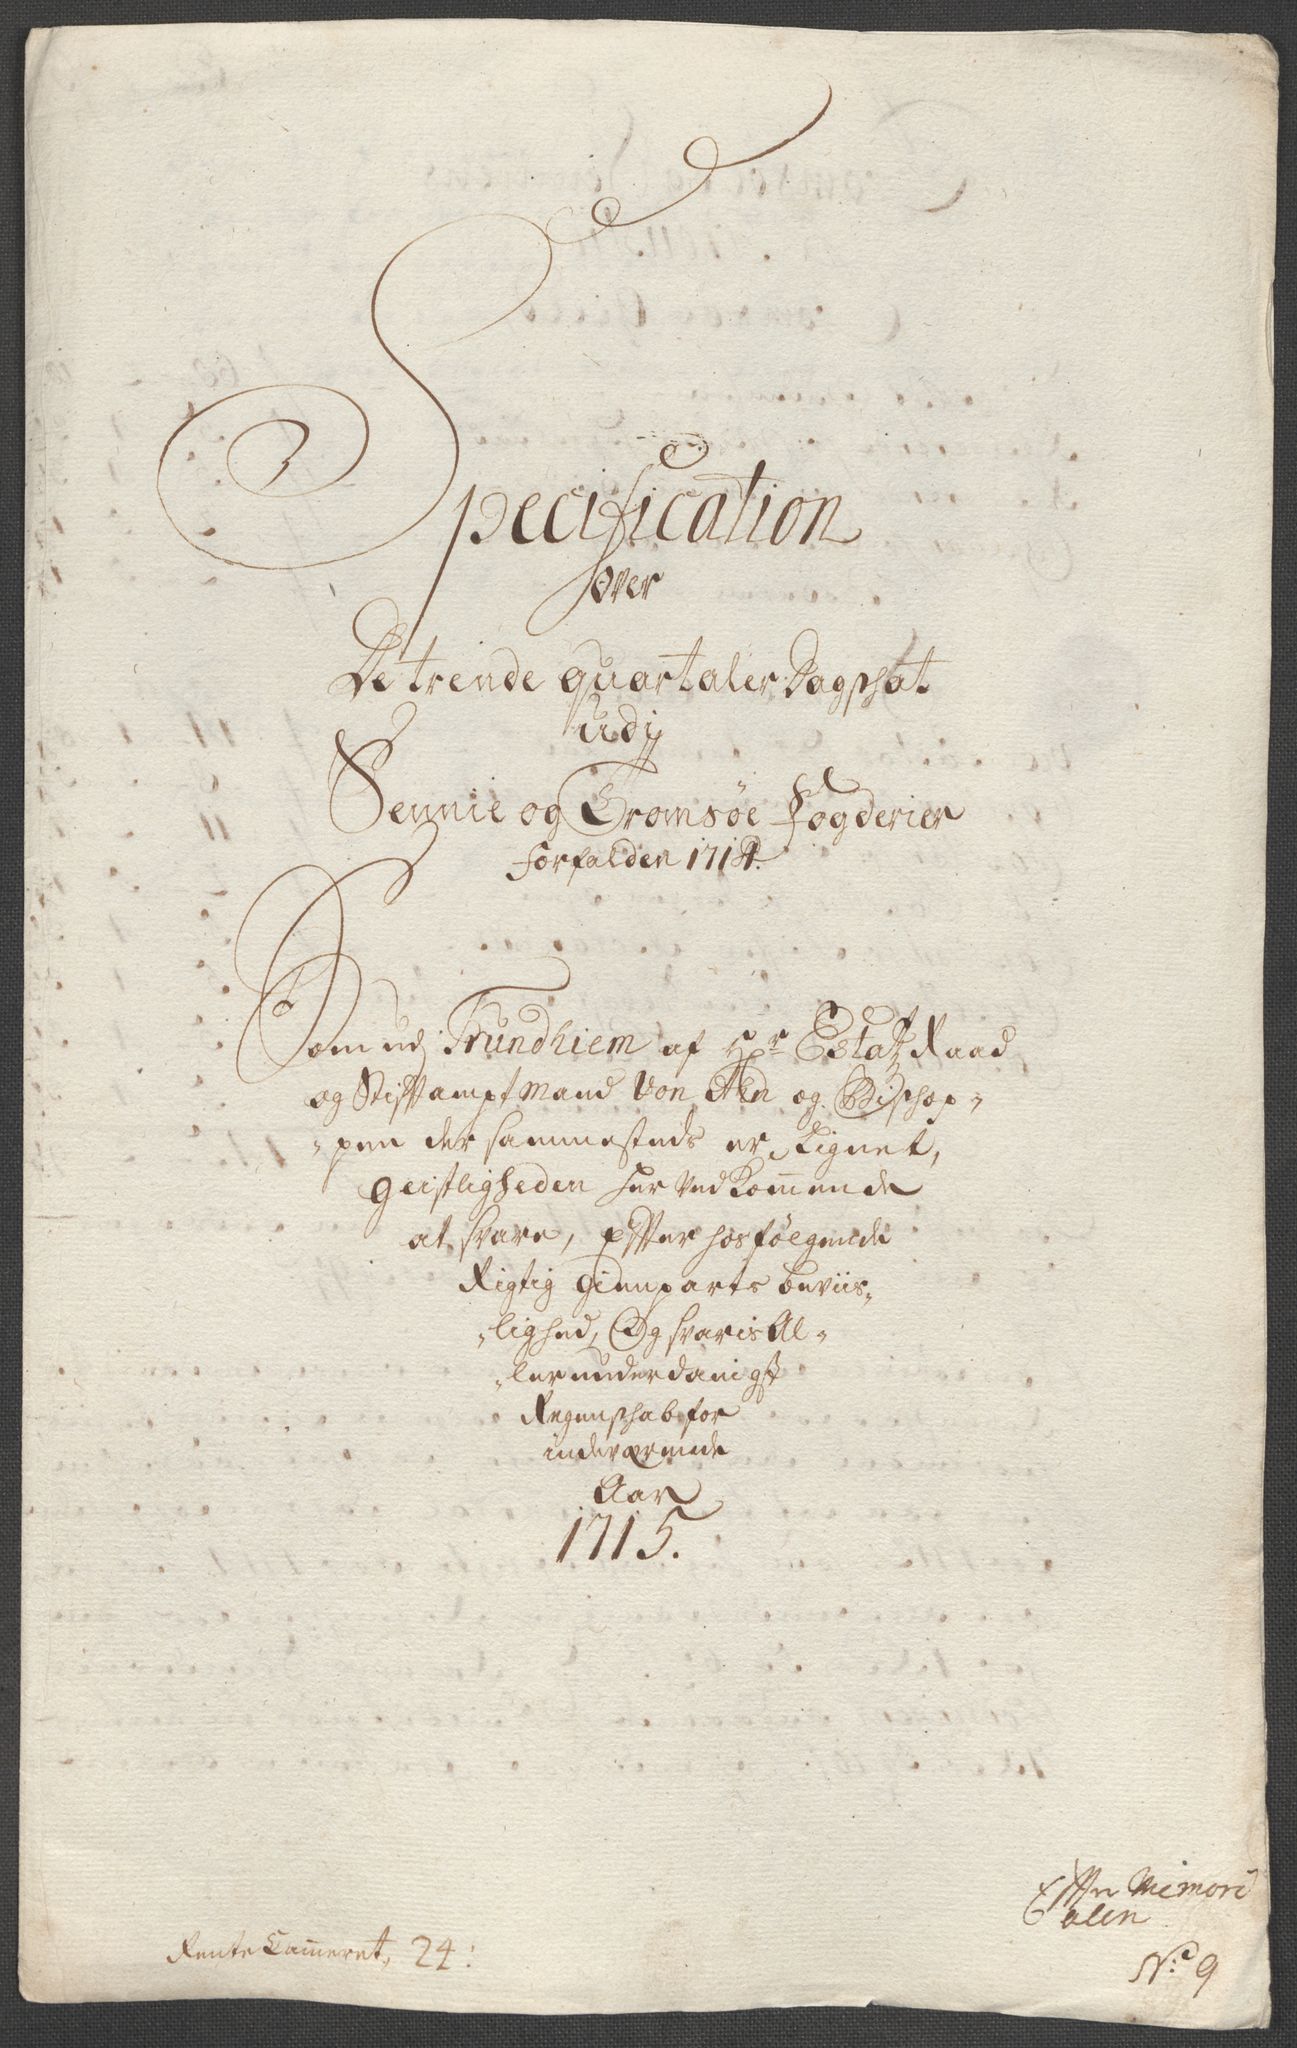 Specification
Over
De trende quartaler Dagschat
udj
Sennie og Tromsøe Fogderier
forfalden 1714.
Som udj Trundhiem af Hr Estatz Raad
og Stifftamptmand Von Ahn og Bischop-
-pen der sammesteds er Lignet,
Geistligheden her ved kommende
at svare, effter hosfølgende
Rigtig gienparts beviis-
-lighed, Og svaris Al-
-lerunderdanigst
Regenschab for
indeværende
Aar
1715.
Effter Memori
alen
No 9
Rente Cammeret, 24: